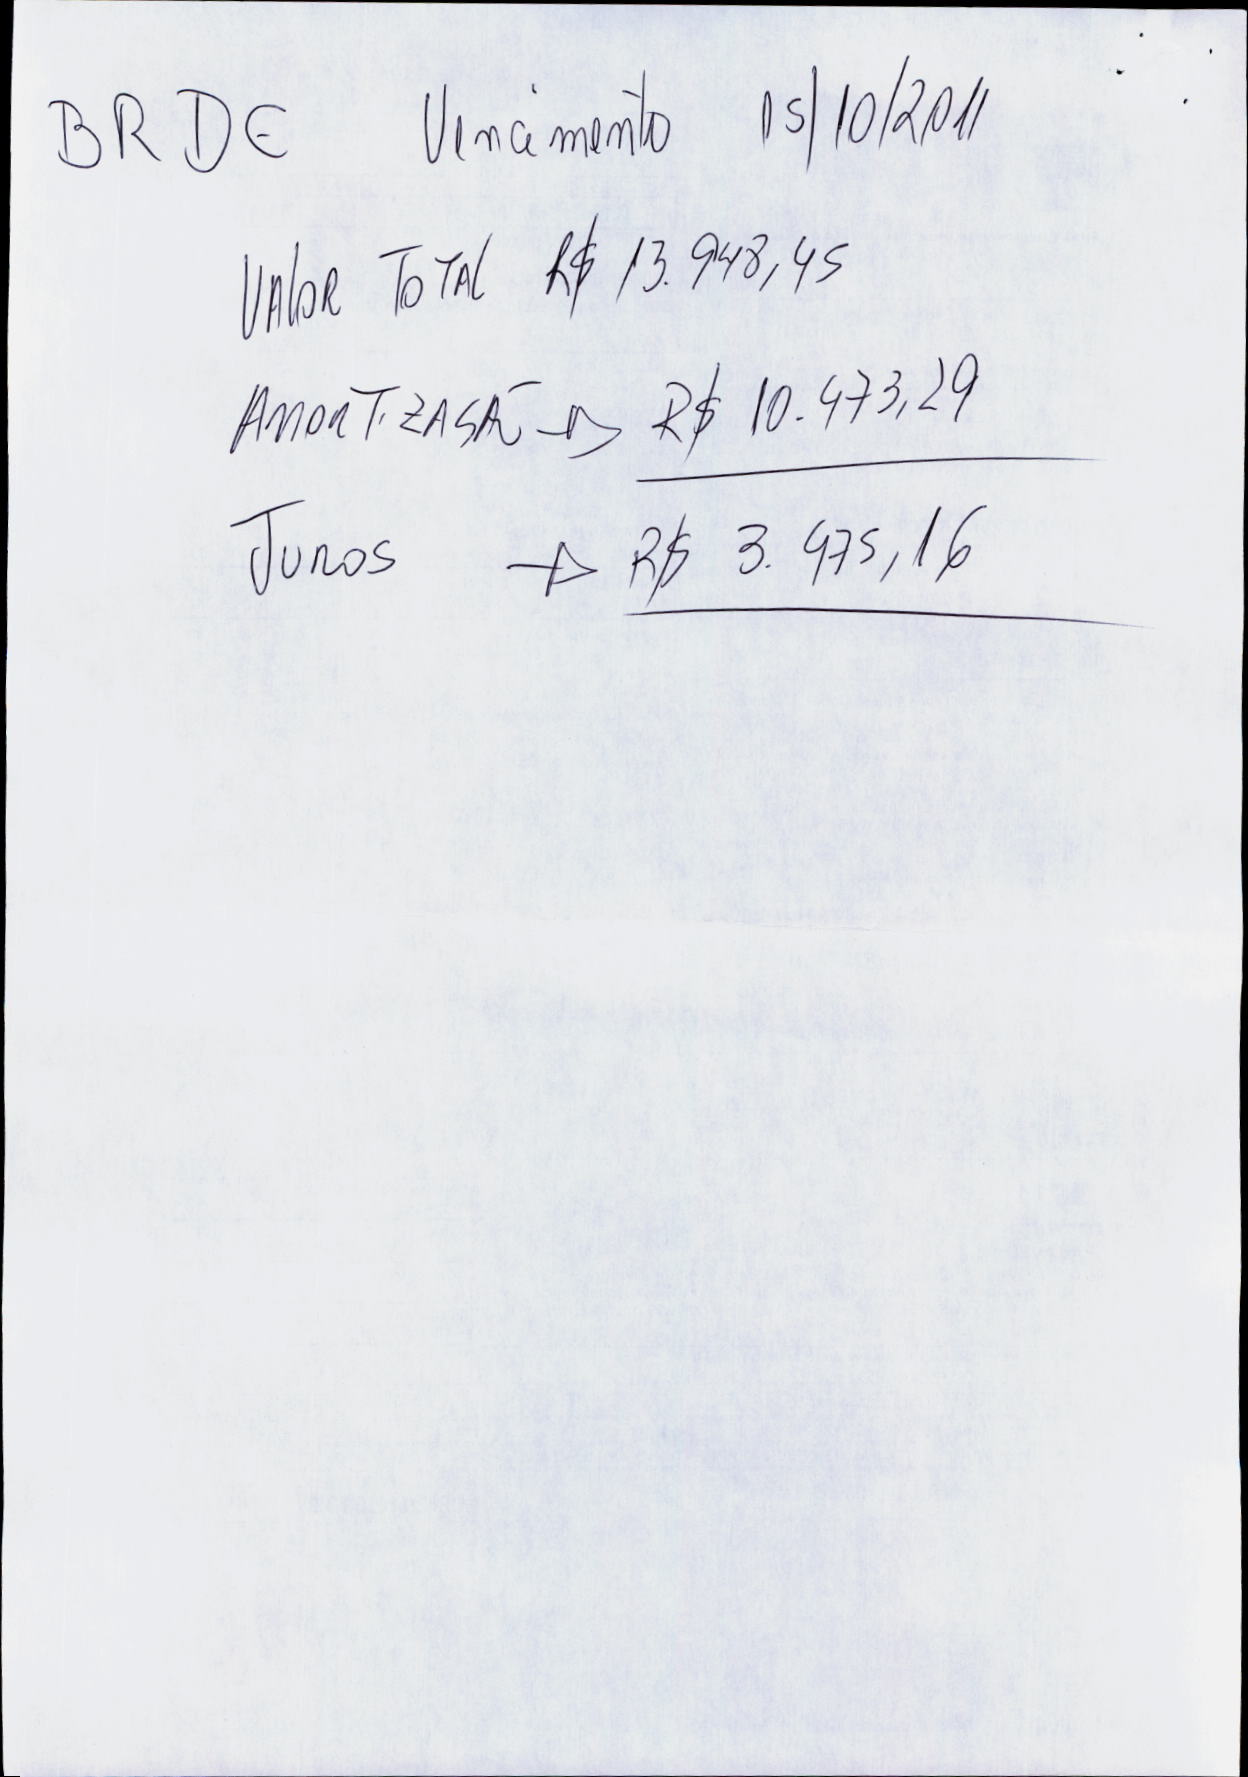 BRDE Vencimento 15/10/2011
VALOR TOTAL R$ 13.948,45
AMORTIZASÃ → R$ 10.473,29
JUROS → R$ 3.475,16